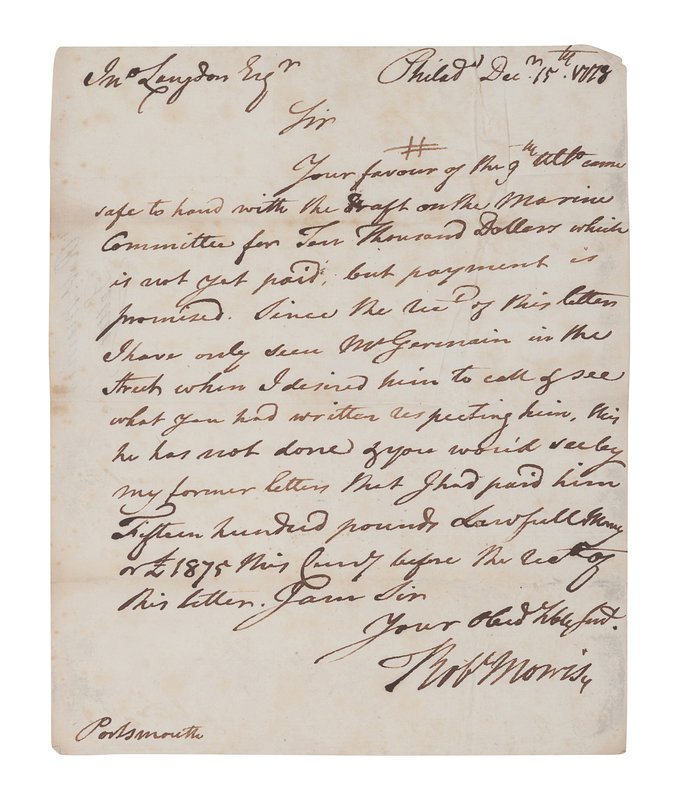 Jnº Langdon Esqr Philada Decr. 15th. 1778
Sir
Your favour of the 9th Ulto came
safe to hand with the draft on the Marine
Committee for Four Thousand Dollars which
is not yet paid, but payment is
promised. Since the recd of this letter
I have only seen Mr Germain in the
Street, when I desired him to call & see
what you had written respecting him, this
he has not done & you wou'd see by
my former letters that I had paid him
Fifteen hundred pounds Lawfull Money
or £1875 this Curry before the rect of
this letter. I am Sir
Your Obedt hble servt.
Robt Morris
Portsmouth